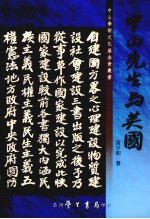 中山學術文化基金會叢書
中山先生與英國
黃宇和 著
自建國方畧之心理建設物質建
設社會建設三書出版之後予乃
從事草作國家建設以完成此帙
國家建設較前三書獨大內涵民
族主義民權主義民生主義五
權憲法地方政府中央政府國防
學生書局印行